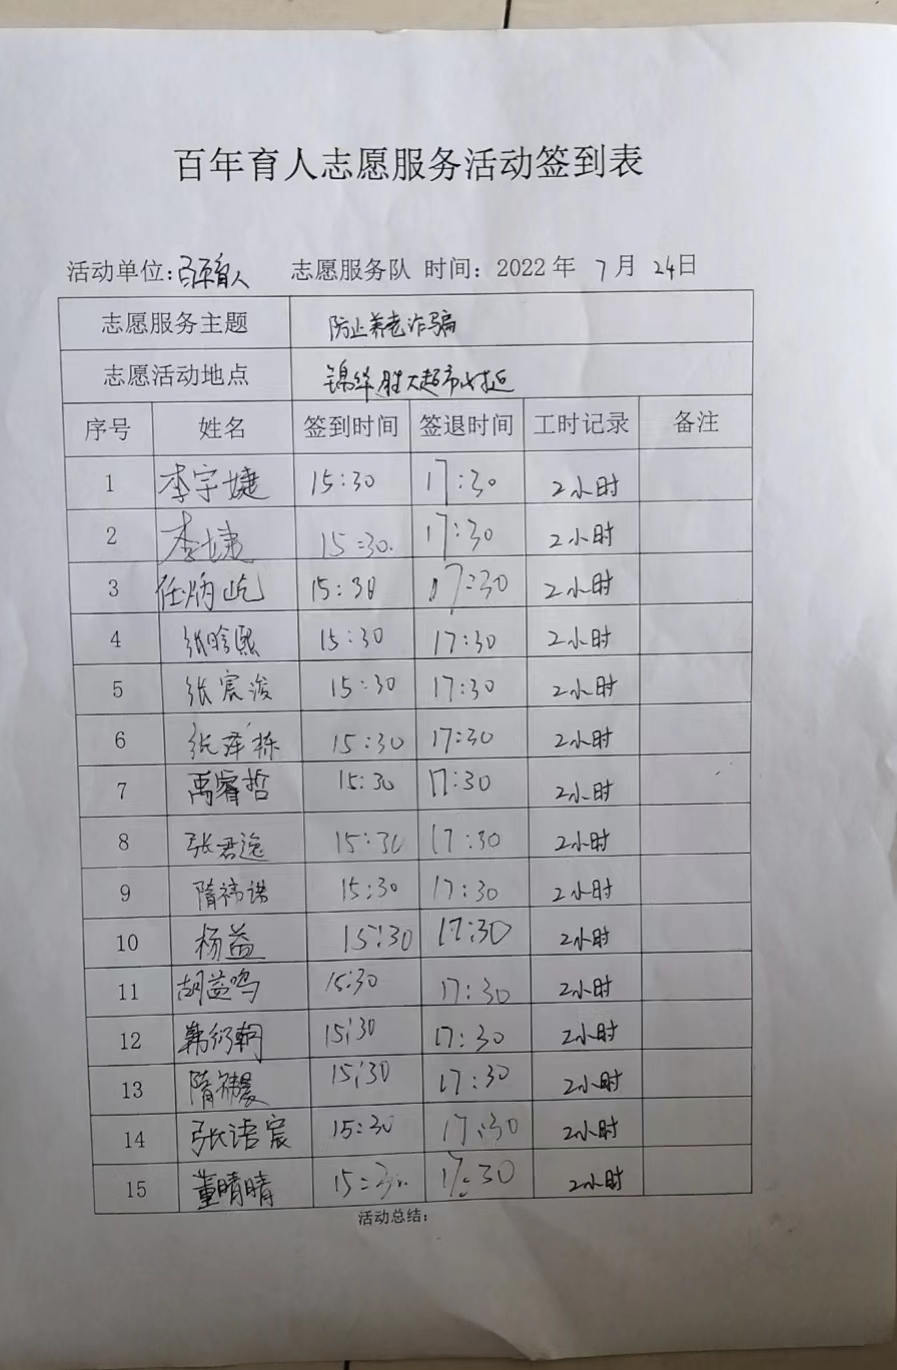 百年育人志愿服务活动签到表
活动单位:百年育人 志愿服务队 时间: 2022年 7月 24日
志愿服务主题 防止养老诈骗
志愿活动地点 锦华胜大超市附近
序号 姓名 签到时间 签退时间 工时记录 备注
1 李宇婕 15:30 17:30 2小时
2 李婕 15:30. 17:30 2小时
3 任炳屹 15:30 17:30 2小时
4 张晗熙 15:30 17:30 2小时
5 张宸浚 15:30 17:30 2小时
6 张泽栋 15:30 17:30 2小时
7 禹睿哲 15:30 17:30 2小时
8 张君逸 15:30 17:30 2小时
9 隋祎诺 15:30 17:30 2小时
10 杨益 15:30 17:30 2小时
11 胡益鸣 15:30 17:30 2小时
12 15:30 17:30 2小时
13 15:30 17:30 2小时
14 张语宸 15:30 17:30 2小时
15 董晴晴 15:30. 17:30 2小时
活动总结: